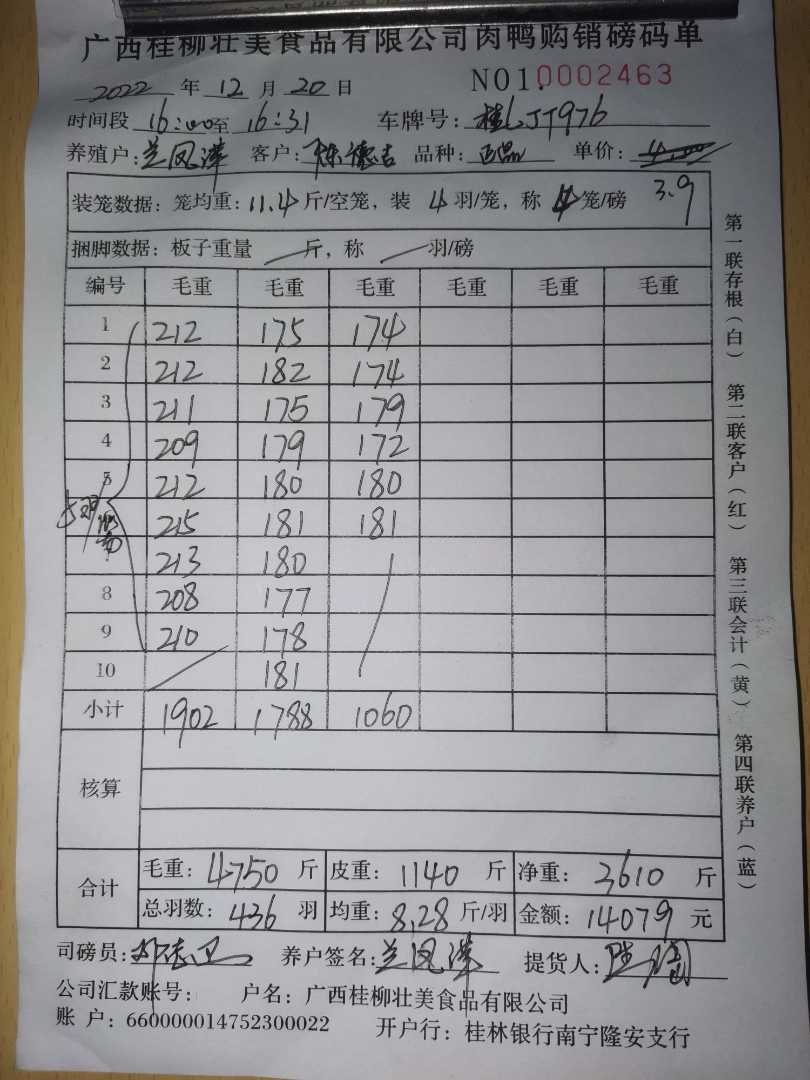 广西桂柳壮美食品有限公司肉鸭购销磅码单
2022 年 12 月 20 日 NO1.0002463
时间段 16:00至 16:31 车牌号: 桂LJT976
养殖户: 兰凤萍 客户: 陈德吉 品种: 正品 单价: 4.00
装笼数据: 笼均重: 11.4 斤/空笼, 装 4 羽/笼, 称 4 笼/磅 3.9
捆脚数据: 板子重量 斤, 称 羽/磅
编号 毛重 毛重 毛重 毛重 毛重 毛重
1 212 175 174
2 212 182 174
3 211 175 179
4 209 179 172
5 212 180 180
215 181 181
213 180
8 208 177
9 210 178
10 181
小计 1902 1788 1060
核算
合计 毛重: 4750 斤 皮重: 1140 斤 净重: 3610 斤
总羽数: 436 羽 均重: 8.28 斤/羽 金额: 14079 元
司磅员: 养户签名: 兰凤萍 提货人:
公司汇款账号: 户名: 广西桂柳壮美食品有限公司
账 户: 660000014752300022 开户行: 桂林银行南宁隆安支行
第一联存根(白) 第二联客户(红) 第三联会计(黄) 第四联养户(蓝)